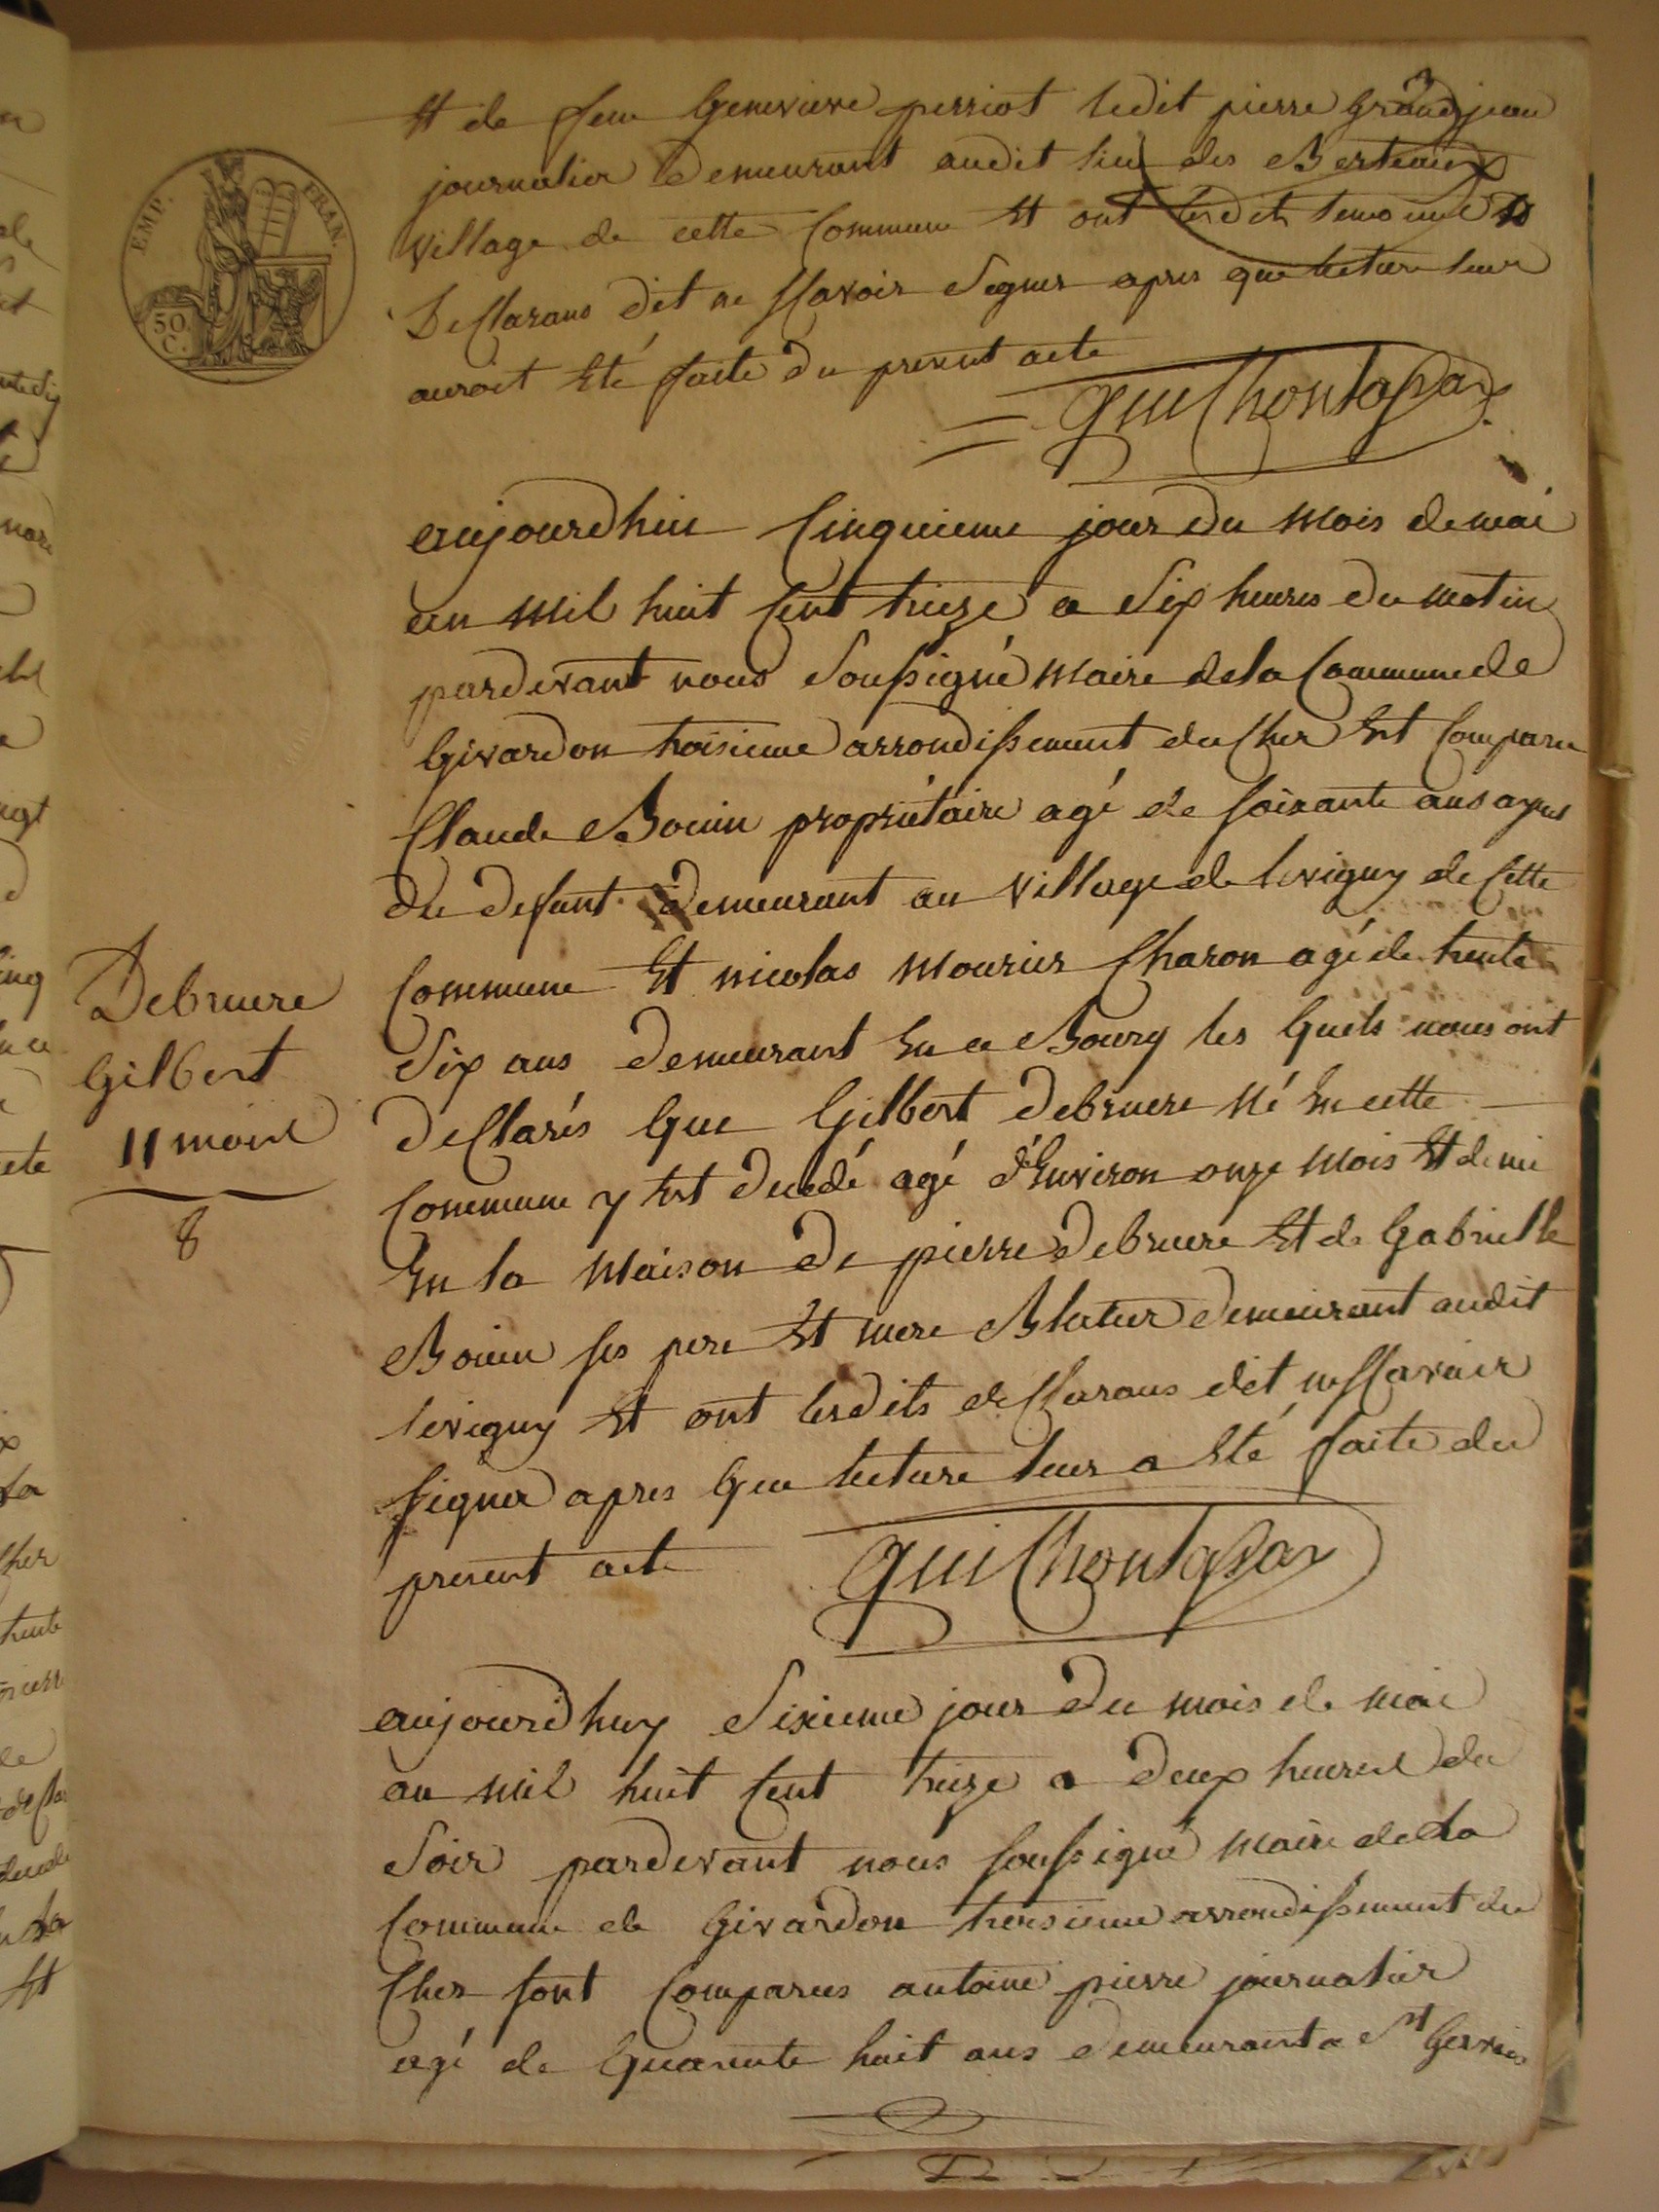 3
EMP. FRAN.
50 C.
Et de feue Genevieve perriot ledit pierre Grandjean
journalier demeurant audit lieu des Berteaux
village de cette Commune Et ont lesdits temoins
Declarans dit ne sçavoir Signer apres que lecture leur
auroit Eté faite du present acte
guichontapar
aujourdhui Cinquieme jour du mois de mai
an mil huit Cent treize a Six heures du matin
pardevant nous Soussigné maire de la Commune de
Givardon troisieme arrondissement du Cher Est Comparu
Claude Bouin propriétaire agé de soixante ans ayeul
du defunt demeurant au village de levigny de Cette
Commune Et nicolas mourier Charon agé de trente
Six ans demeurant En ce Bourg les quels nous ont
declarés que Gilbert debruere né En cette
Commune y Est decedé agé d'Environ onze mois Et demi
En la maison de pierre debruere Et de Gabrielle
Bouin ses pere Et mere demeurant audit
levigny Et ont lesdits declarans dit ne sçavoir
signer apres que lecture leur a Eté faite du
present acte
guichontapar
Debruere
Gilbert
11 mois
8
aujourdhuy Sixieme jour du mois de mai
an mil huit Cent treize a deux heures du
Soir pardevant nous soussigné maire de la
Commune de Givardon troisieme arrondissement du
Cher sont Comparus antoine pierre journalier
agé de quarante huit ans demeurant a St Gervais